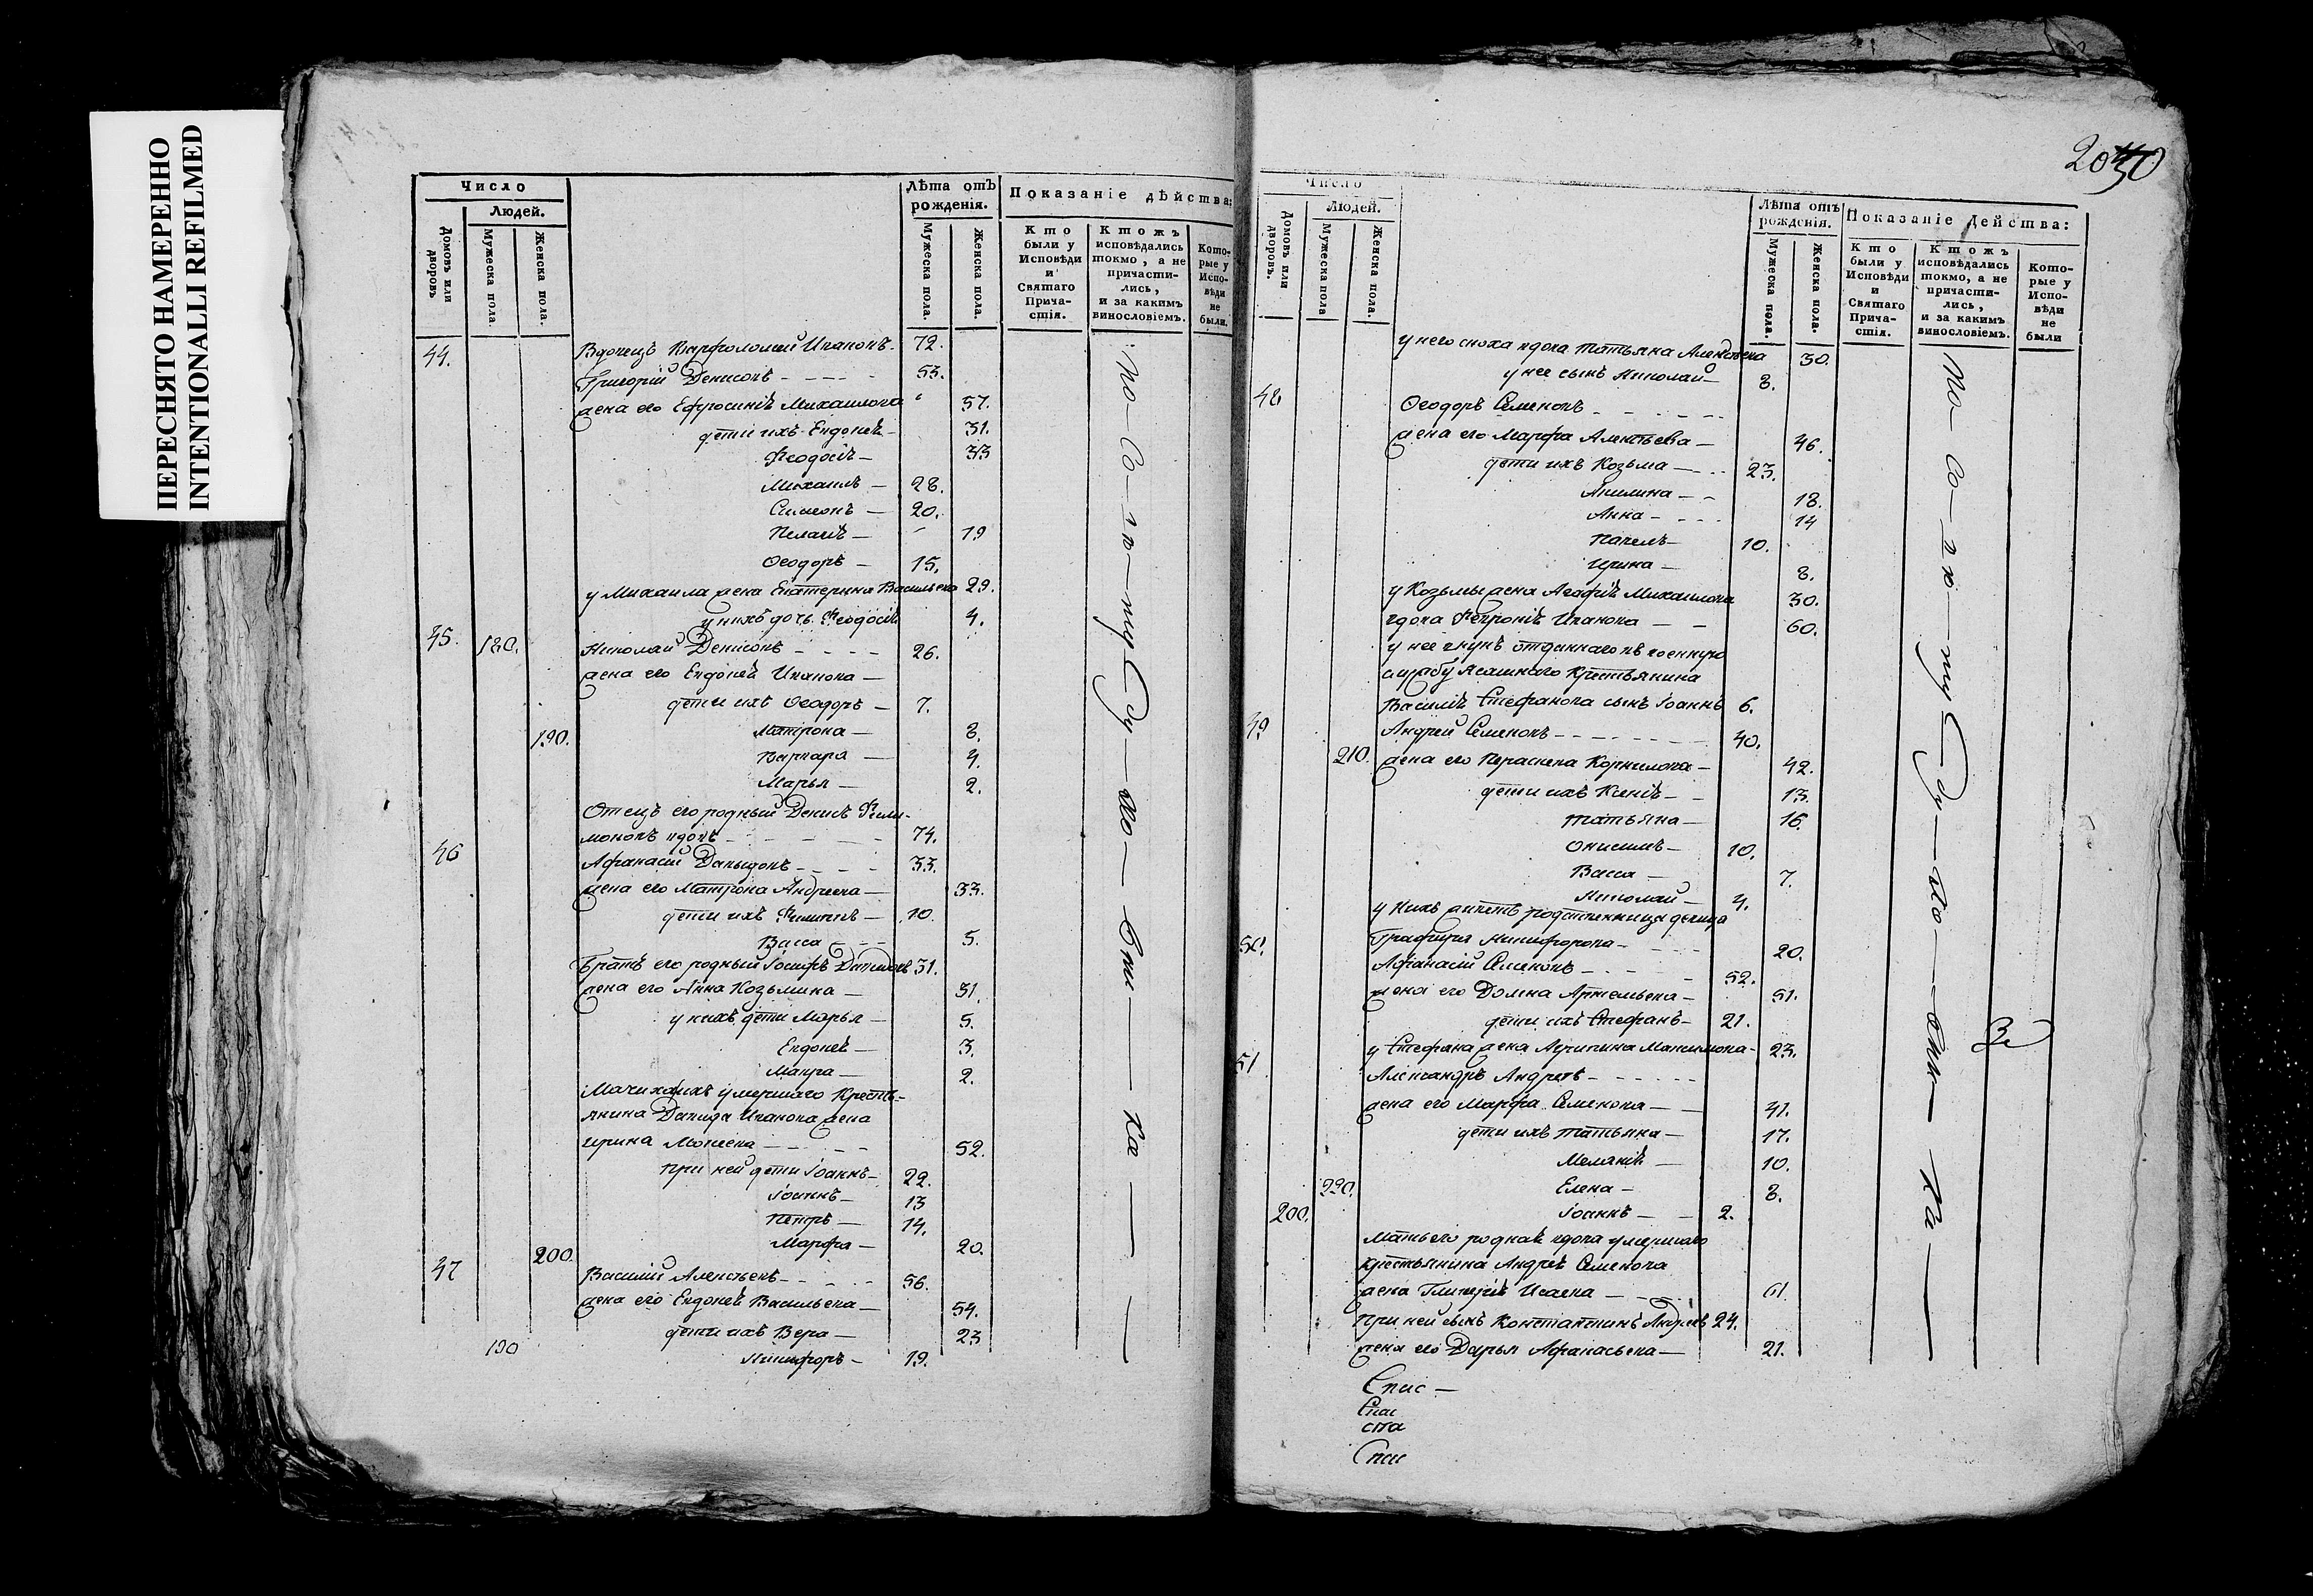 ПЕРЕСНЯТО НАМЕРЕННО
INTENTIONALLI REFILMED
Число
Людей.
Домовъ или дворовъ
Мужеска пола.
Женска пола.
Лѣта отъ рожденія.
Мужеска пола.
Женска пола.
Показаніе дѣйства:
Кто были у Исповѣди и Святаго Причастія.
Ктожъ исповѣдались токмо, а не причастились, и за какимъ винословіемъ.
Которые у Исповѣди не были.
44. Вдовецъ Варфоломей Ивановъ 72.
Григорій Денисовъ 53.
жена его Ефросинія Михаилова 57.
дети ихъ Евдокія 31.
Феодосія 33
Михаилъ 28.
Симеонъ 20.
Пелагія 19
Ѳеодоръ 15.
у Михаила жена Екатерина Васильева 29.
у нихъ дочь Феодосія 4.
45. 180. Николай Денисовъ 26.
жена его Евдокія Иванова
дети ихъ Ѳеодоръ 7.
190. Матрона 8.
Варвара 4.
Марья 2.
Отецъ его родный Денисъ Фили-
моновъ вдовъ 74.
46 Афанасій Давыдовъ 33.
жена его Матрона Андреева 33.
дети ихъ Филиппъ 10.
Васса 5.
Братъ его родный Іосифъ Давыдовъ 31.
жена его Анна Козьмина 31.
у нихъ дети Марья 5.
Евдокія 3.
Мавра 2.
Мачиха ихъ умершаго Кресть-
янина Давида Иванова жена
Ирина Моисеева 52.
при ней дети Іоаннъ 22.
Іоаннъ 13
Петръ 14.
Марфа 20.
47 200. Василій Алексѣевъ 56.
жена его Евдокія Васильева 54.
дети ихъ Вера 23
190 Никифоръ 19.
2030
Число
Людей.
Домовъ или дворовъ.
Мужеска пола
Женска пола.
Лѣта отъ рожденія.
Мужеска пола.
Женска пола.
Показаніе Действа:
Кто были у Исповѣди и Святаго Причастія.
Ктожъ исповѣдались токмо, а не причастились, и за какимъ винословіемъ.
Которые у Исповѣди не были
у него сноха вдова Татьяна Алексѣева 30.
у нее сынъ Николай 8.
48 Ѳеодоръ Семеновъ
жена его Марфа Алексѣева 46.
дети ихъ Козьма 23.
Акилина 18.
Анна 14
Павелъ 10.
Ирина 8.
у Козьмы жена Агафія Михаилова 30.
вдова Февронія Иванова 60.
у нее внукъ отданнаго въ военную
службу Ясашнаго Крестьянина
Василія Стефанова сынъ Іоаннъ 6.
49 Андрей Семеновъ 40.
210. жена его Параскева Корнилова 42.
дети ихъ Ксенія 13.
Татьяна 16.
Онисимъ 10.
Васса 7.
Николай 4.
у нихъ живетъ родственница девица
50. Графира Никифорова 20.
Афанасій Семеновъ 52.
жена его Домна Артемьева 51.
дети ихъ Стефанъ 21.
у Стефана жена Агрипина Максимова 23.
51 Александръ Андреевъ
жена его Марфа Семенова 41.
дети ихъ Татьяна 17.
Меланія 10.
220. Елена 8.
200. Іоаннъ 2.
Мать его родная вдова умершаго
крестьянина Андрея Семенова
жена Гликерія Исаева 61
При ней сынъ Константинъ Андреевъ 24.
жена его Дарья Афанасьева 21.